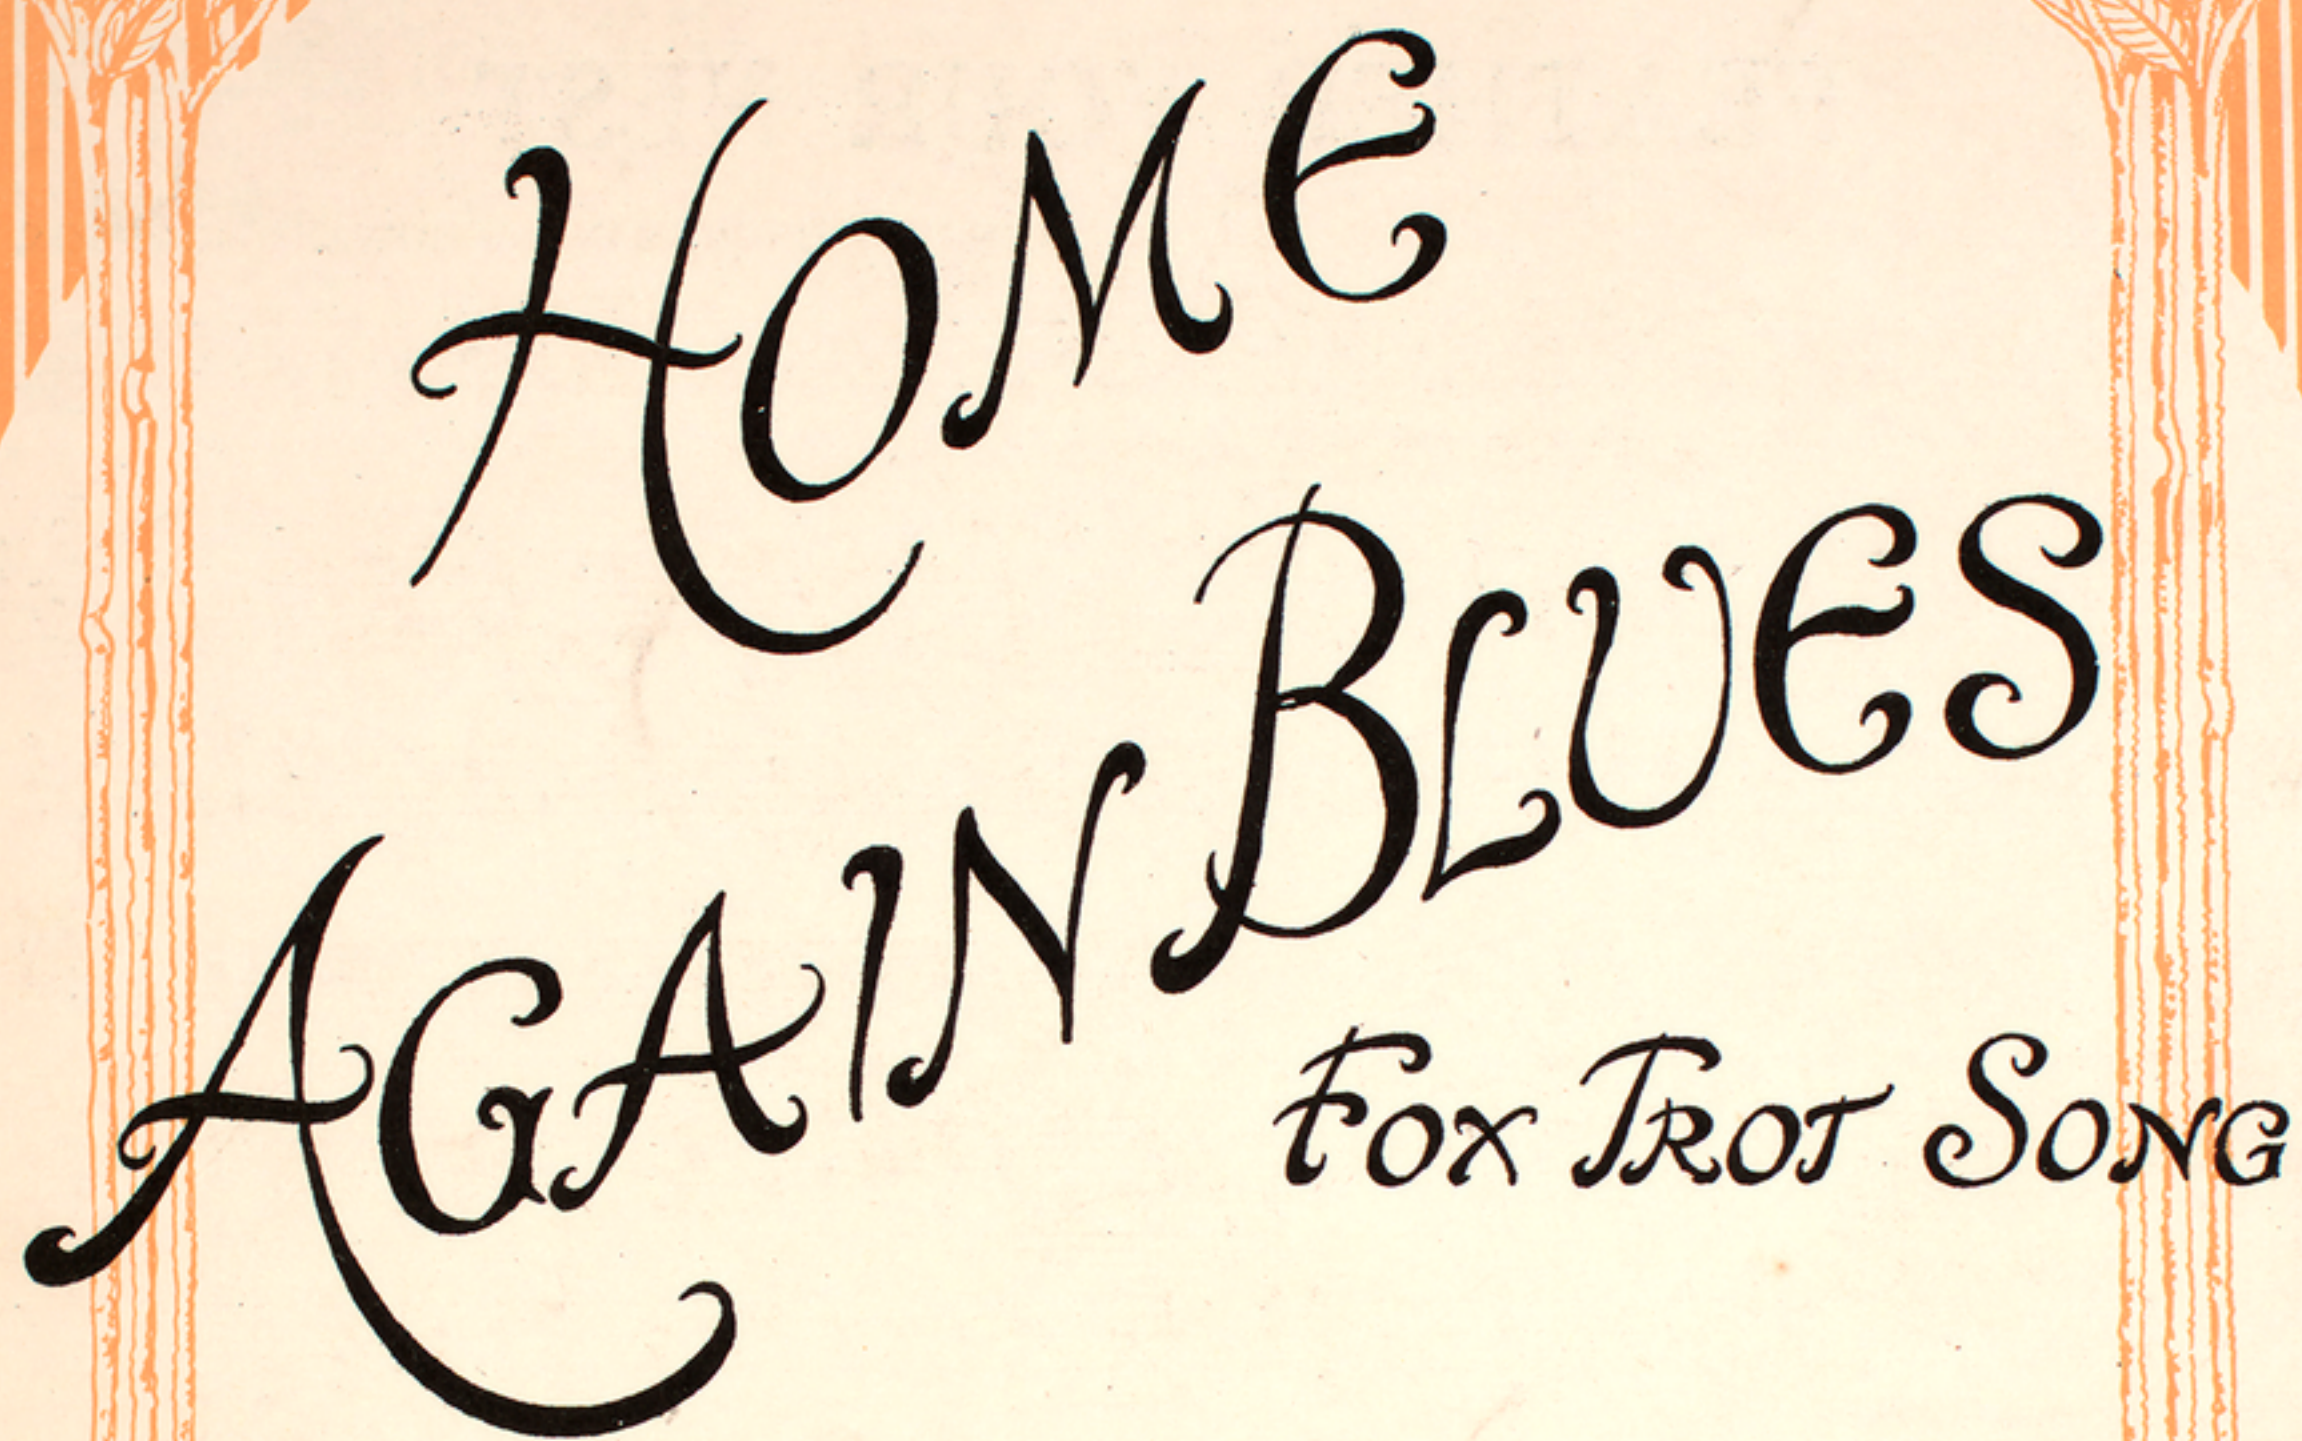 HOME
AGAIN BLUES
FOX TROT SONG